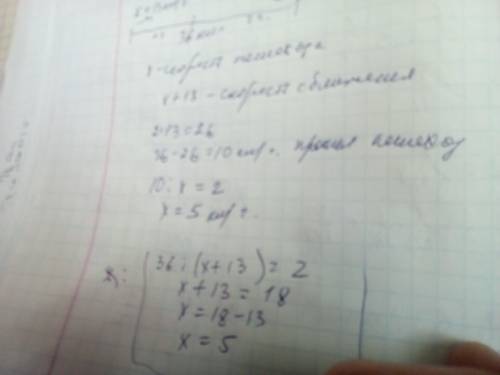 36 км
x - скорость пешехода
x+13 - скорость сближения
2·13=26
36-26=10 км/ч. прошел пешеход
10 : x = 2
x = 5 км/ч.
36 : (x+13) = 2
x + 13 = 18
x = 18 - 13
x = 5